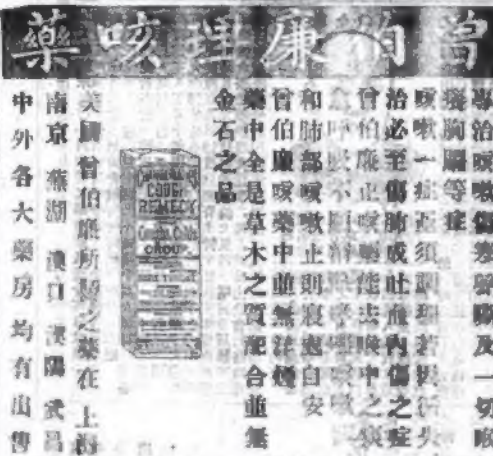 曾伯廉理咳藥
專治咳嗽傷寒及一切喉
胸膈等症
咳嗽一症須調理若因循失
治必至傷肺或吐血內傷之症
曾伯廉止咳能去喉中之痰
呼吸不
和肺部咳嗽止則寢處自安
曾伯廉咳藥中並無洋煙
藥中全是草木之質配合並無
金石之品
COUGH
REMEDY
Coughs, Colds
CROUP
美國曾伯廉所製之藥在上海
南京 蕪湖 漢口 漢陽 武昌
中外各大藥房均有出售